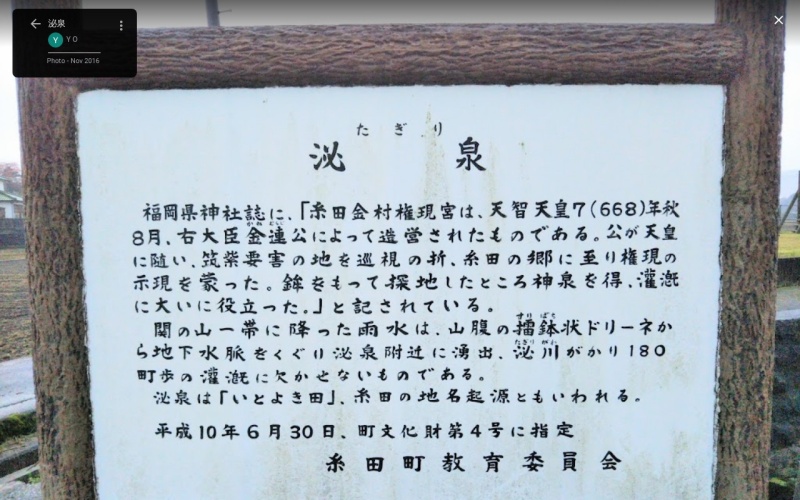 泌泉
Y
Y O
Photo - Nov 2016
たぎり
泌泉
福岡県神社誌に、「糸田金村権現宮は、天智天皇7(668)年秋
8月、右大臣金連公によって造営されたものである。公が天皇
に随い、筑紫要害の地を巡視の折、糸田の郷に至り権現の
示現を蒙った。鉾をもって探地したところ神泉を得、灌漑
に大いに役立った。」と記されている。
すり ばち
関の山一帯に降った雨水は、山腹の擂鉢状ドリーネか
たぎり がわ
ら地下水脈をくぐり泌泉附近に湧出、泌川がかり180
町歩の灌漑に欠かせないものである。
泌泉は「いとよき田」、糸田の地名起源ともいわれる。
平成10年6月30日、町文化財第4号に指定
糸田町教育委員会